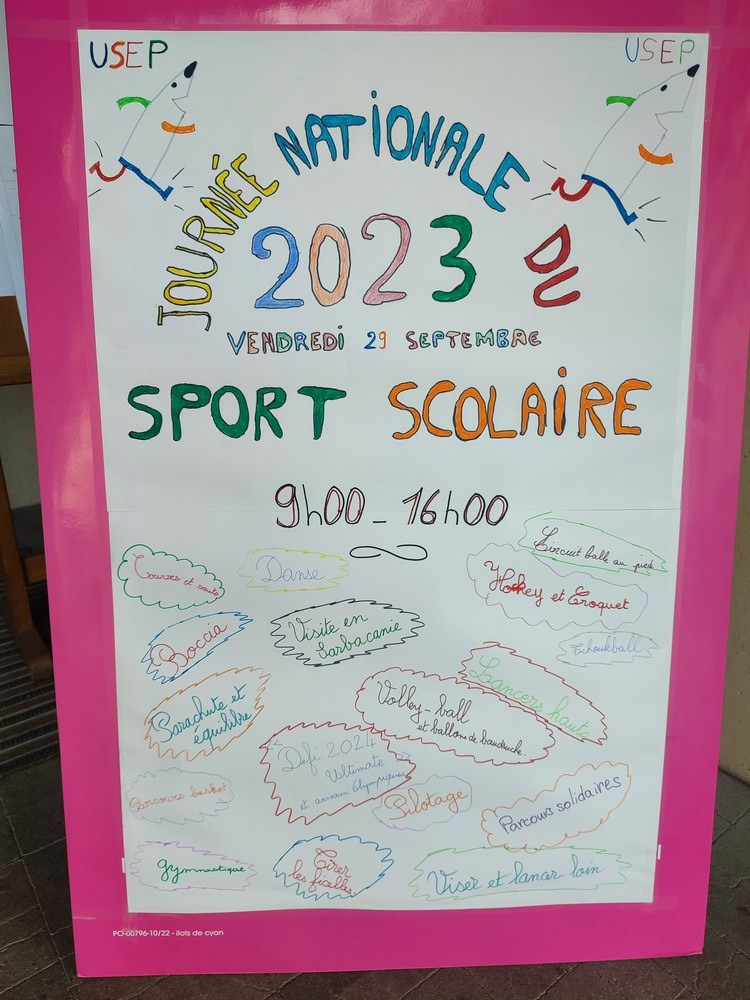 USEP
USEP
JOURNÉE NATIONALE DU
2023
VENDREDI 29 SEPTEMBRE
SPORT SCOLAIRE
9h00 - 16h00
Circuit balle au pied
Courses et sauts
Danse
Hockey et Croquet
Boccia
Visite en
Sarbacanie
Tchoukball
Lancers hauts
Parachute et
équilibre
Volley-ball
et ballons de baudruche
Défi 2024
Ultimate
et anneaux Olympiques
Parcours basket
Pilotage
Parcours solidaires
gymnastique
Tirer
les ficelles
Viser et lancer loin
PO-00796-10/22 - ilots de cyan